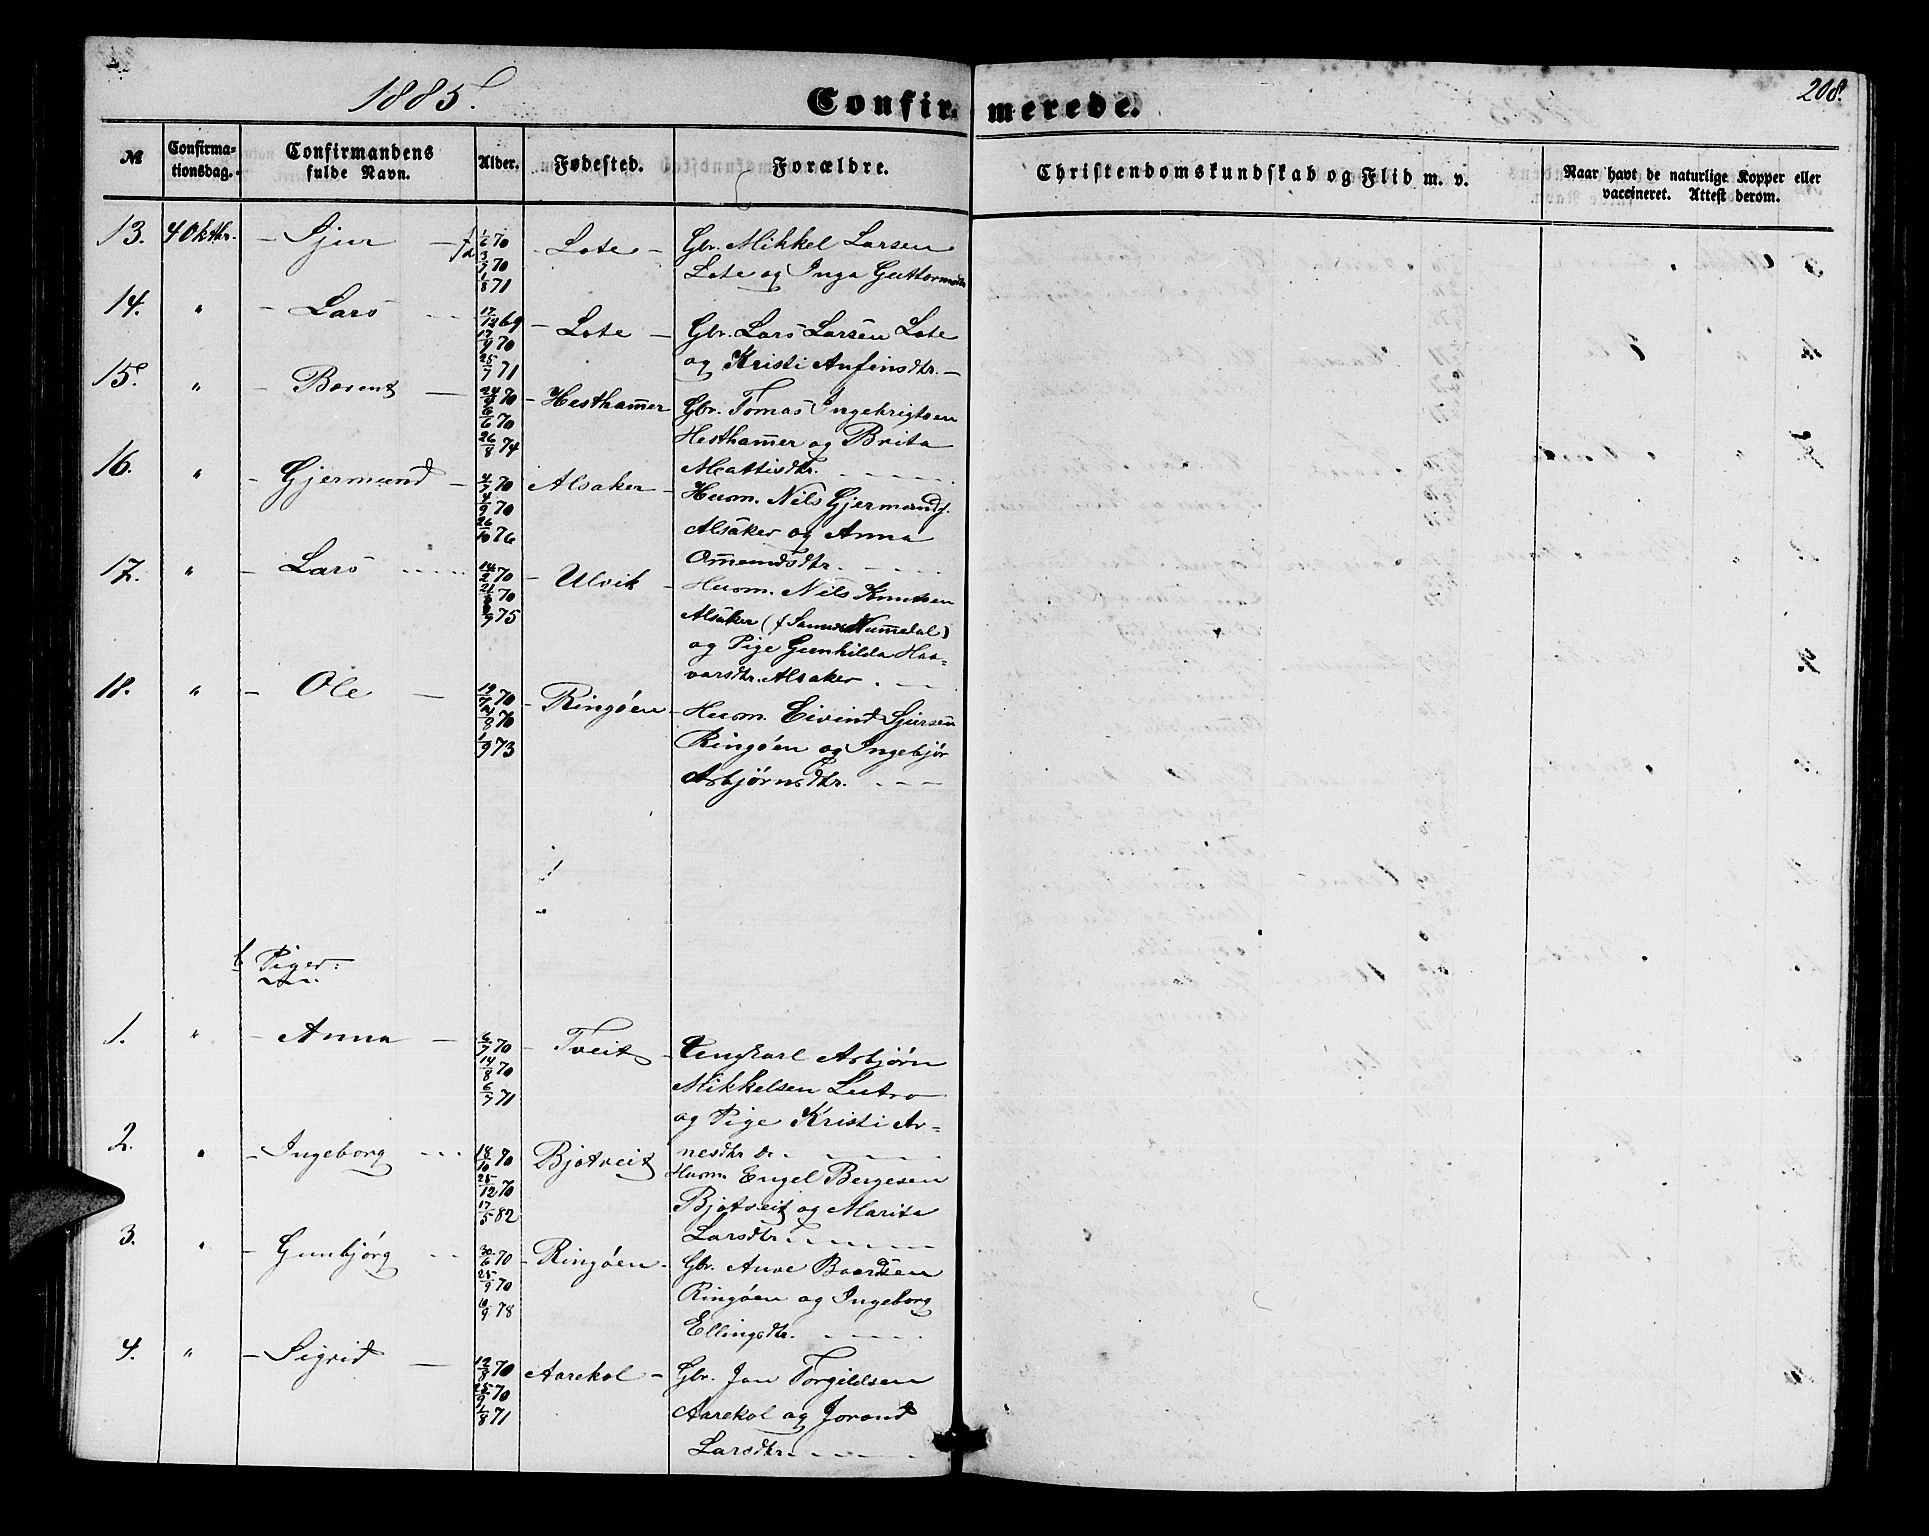 1885.
Confirmerede.
208.
№
Confirmationsdag.
Confirmandens fulde Navn.
Alder.
Fødested.
Forældre.
Christendomskundskab og Flid m. v.
Naar havt de naturlige Kopper eller vaccineret. Attest derom.
13. 4 Oktbr. - Sjur - 1/6 70 - Lote - Gbr. Mikkel Larsen
3/7 70 Lote og Inga Guttormsdtr
1/8 71
14. " - Lars - 17/12 69 - Lote - Gbr. Lars Larsen Lote
17/9 70 og Kristi Anfinsdtr. -
25/7 71
15. " - Berent - 70 - Hesthamer Gbr. Tomas Ingebrigtsen
6/6 70 Hesthamer og Brita
26/8 74 Mattisdtr.
16. " - Gjermund - 4/7 70 Alsaker - Husm. Nils Gjermunds.
4/9 70 Alsaker og Anna
26/10 76 Omundsdtr.
17. " - Lars - 14/2 70 - Ulvik - Husm. Nils Knutsen
70 Alsaker (f Nummedal)
75 og Pige Gunhilda Haa-
varsdtr. Alsaker.
18. " - Ole - 70 - Ringøen - Husm. Eivind Sjursen
70 Ringøen og Ingebjør
1/9 73 Asbjørnsdtr.
b Piger:
1. " - Anna - 6/7 70 - Tveit - Ungkarl Asbjørn
14/8 70 Mikkelsen Lutro
6/7 71 og Pige Kristi Ar-
nesdtr
2. " - Ingeborg 18/10 70 Bjotveit Husm. Engel Bergesen
25/12 70 Bjotveit og Marita
17/5 82 Larsdtr.
3. " - Gunbjørg 30/6 70 - Ringøen - Gbr. Aure Baardsen
25/9 70 Ringøen og Ingeborg
6/9 78 Ellingsdtr.
4. " - Sigrid - 12/8 70 Aarekol - Gbr. Jon Torgildsen
25/9 70 Aarekol og Jorand
1/8 71 Larsdtr.